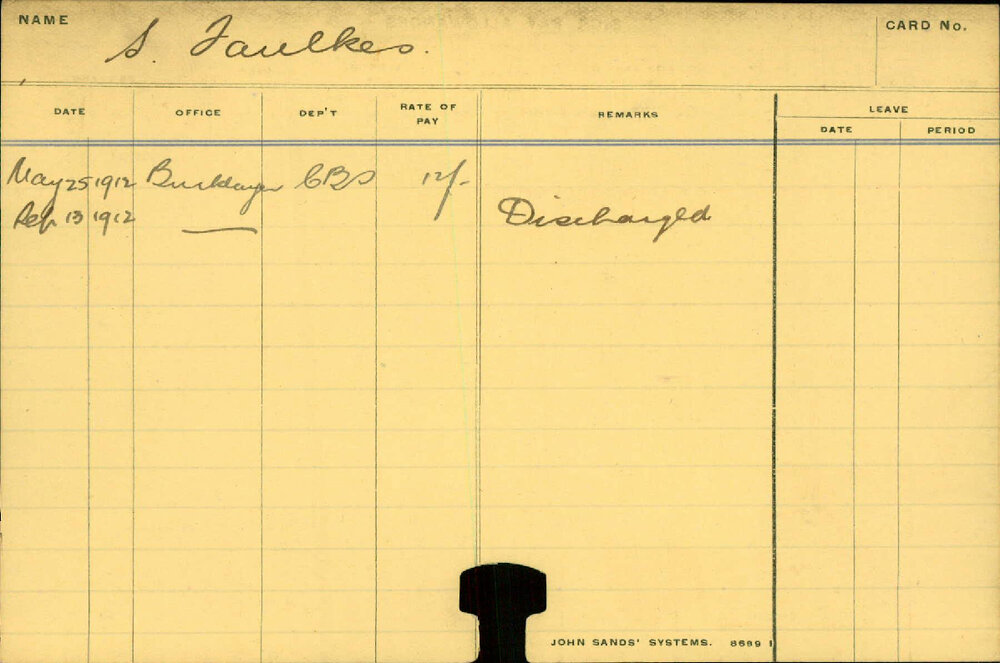 NAME
S. Faulkes.
CARD No.
DATE OFFICE DEP'T RATE OF PAY REMARKS LEAVE
DATE PERIOD
May 25 1912 Bricklayer CBS 12/-
Sep. 13 1912 — Discharged
JOHN SANDS' SYSTEMS. 8689